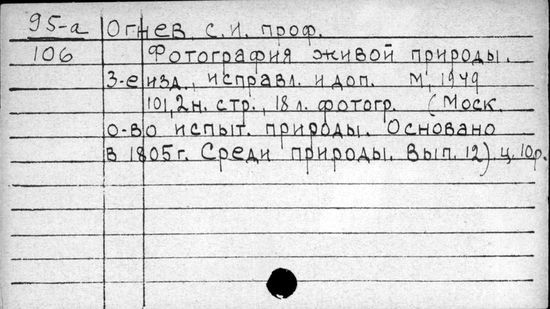 95-а Огнев С.И. проф.
106 Фотография живой природы.
3-е изд., исправл. и доп. М, 1949
101, 2 н. стр., 18 л. фотогр. (Моск.
о-во испыт. природы. Основано
в 1805 г. Среди природы. Вып. 12) ц. 10 р.